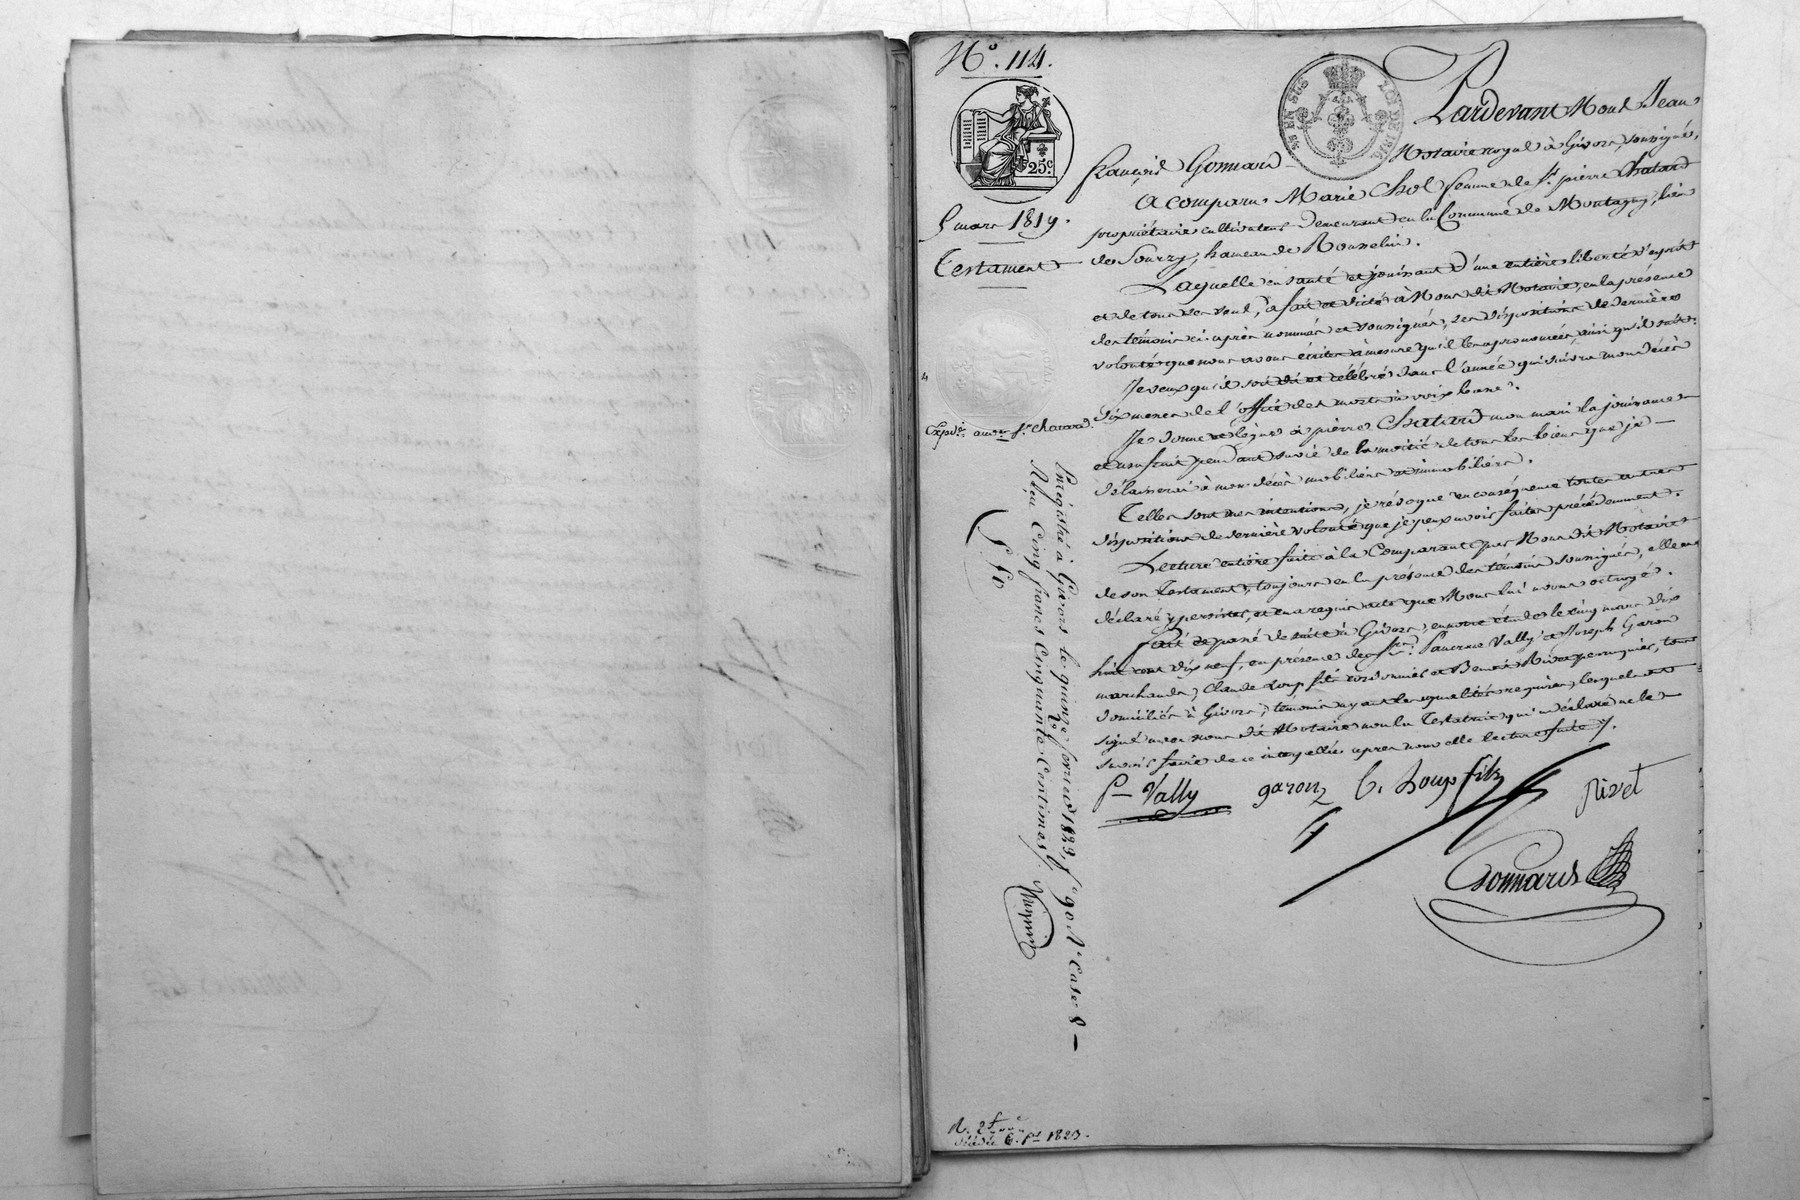 N°. 114.
25c.
5 mars 1819.
Testament
Expdié. au sr. Chatard.
Pardevant Nous Jean
françois Gonnard Notaire royal à Givors, soussigné,
A comparu Marie Chol femme de Sr. pierre Chatard
propriétaire cultivateur demeurant en la Commune de Montagny, lieu
de Sourzy, hameau de Rousselin.
Laquelle en santé et jouissant d'une entière liberté d'esprit
et de tous ses sens, a fait et dicté à Nous dit Notaire, en la présence
des témoins ci-après nommés et soussignés, ses dispositions de dernière
volonté que nous avons écrites à mesure qu'il les a prononcées, ainsi qu'il suit.
Je veux qu'il soit dit et célébré dans l'année qui suivra mon décès
dix messes de l'office des morts à voix basse.
Je donne et lègue à pierre Chatard mon mari la jouissance
et usufruit pendant sa vie de la moitié de tous les biens que je
délaisserai à mon décès mobiliers et immobiliers.
Telles sont mes intentions, je révoque en conséquence toutes autres
dispositions de dernière volonté que je peux avoir faites précédemment.
Lecture entière faite à la Comparante par Nous dit Notaire
de son Testament, toujours en la présence des témoins soussignés, elle a
déclaré y persister, et en a requis acte que Nous lui avons octroyé.
fait et passé de suite à Givors, en notre étude le cinq mars dix
huit cent dix neuf, en présence des Srs. Vally et Joseph Garon
marchands, Claude Loup fils cordonnier et Benoit Rivet perruquier, tous
domiciliés à Givors, témoins ayant les qualités requises, lesquels ont
signé avec nous dit Notaire non la Testatrice qui a déclaré ne le
savoir faire de ce interpellée après nouvelle lecture faite /.
P Vally garon C. Loup fils Rivet
Gonnard
Enregistré à Givors le quinze février 1823, fo 90 Ro Case 8
Reçu Cinq francs Cinquante Centimes.
1823.